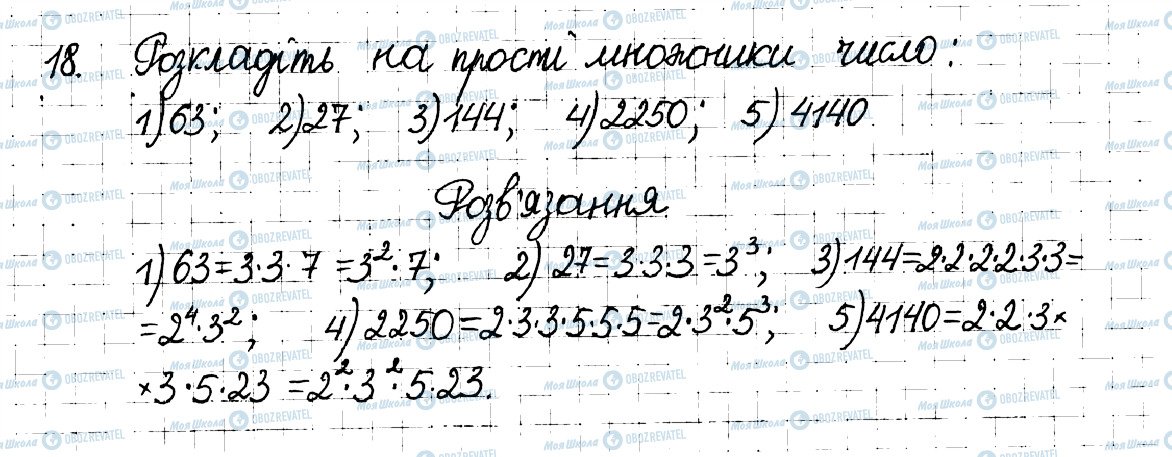 18. Розкладіть на прості множники число:
1) 63; 2) 27; 3) 144; 4) 2250; 5) 4140.
Розв'язання
1) 63=3·3·7=3²·7; 2) 27=3·3·3=3³; 3) 144=2·2·2·2·3·3=
=2⁴·3²; 4) 2250=2·3·3·5·5·5=2·3²·5³; 5) 4140=2·2·3×
×3·5·23=2²·3²·5·23.